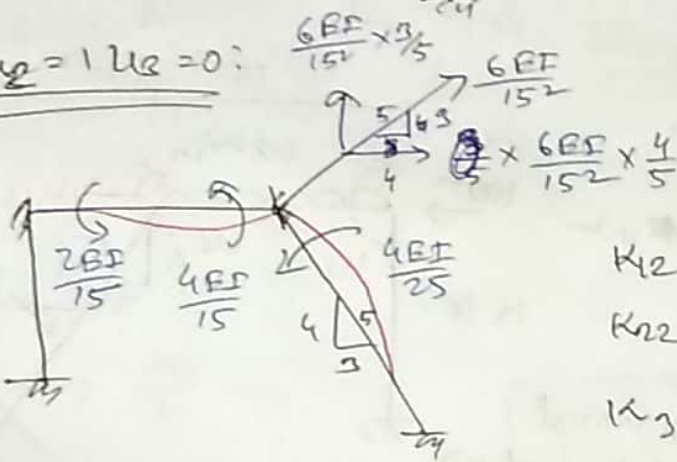 u2 = 1 u3 = 0 :
6EI/15² × 3/5
6EI/15²
5 3
4
× 6EI/15² × 4/5
2EI/15
4EI/15
4EI/25
4 5
3
K12
K22
K3